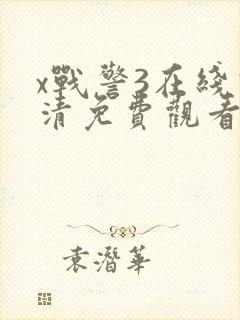 x戰警3在綫
清免費觀看
袁潛華